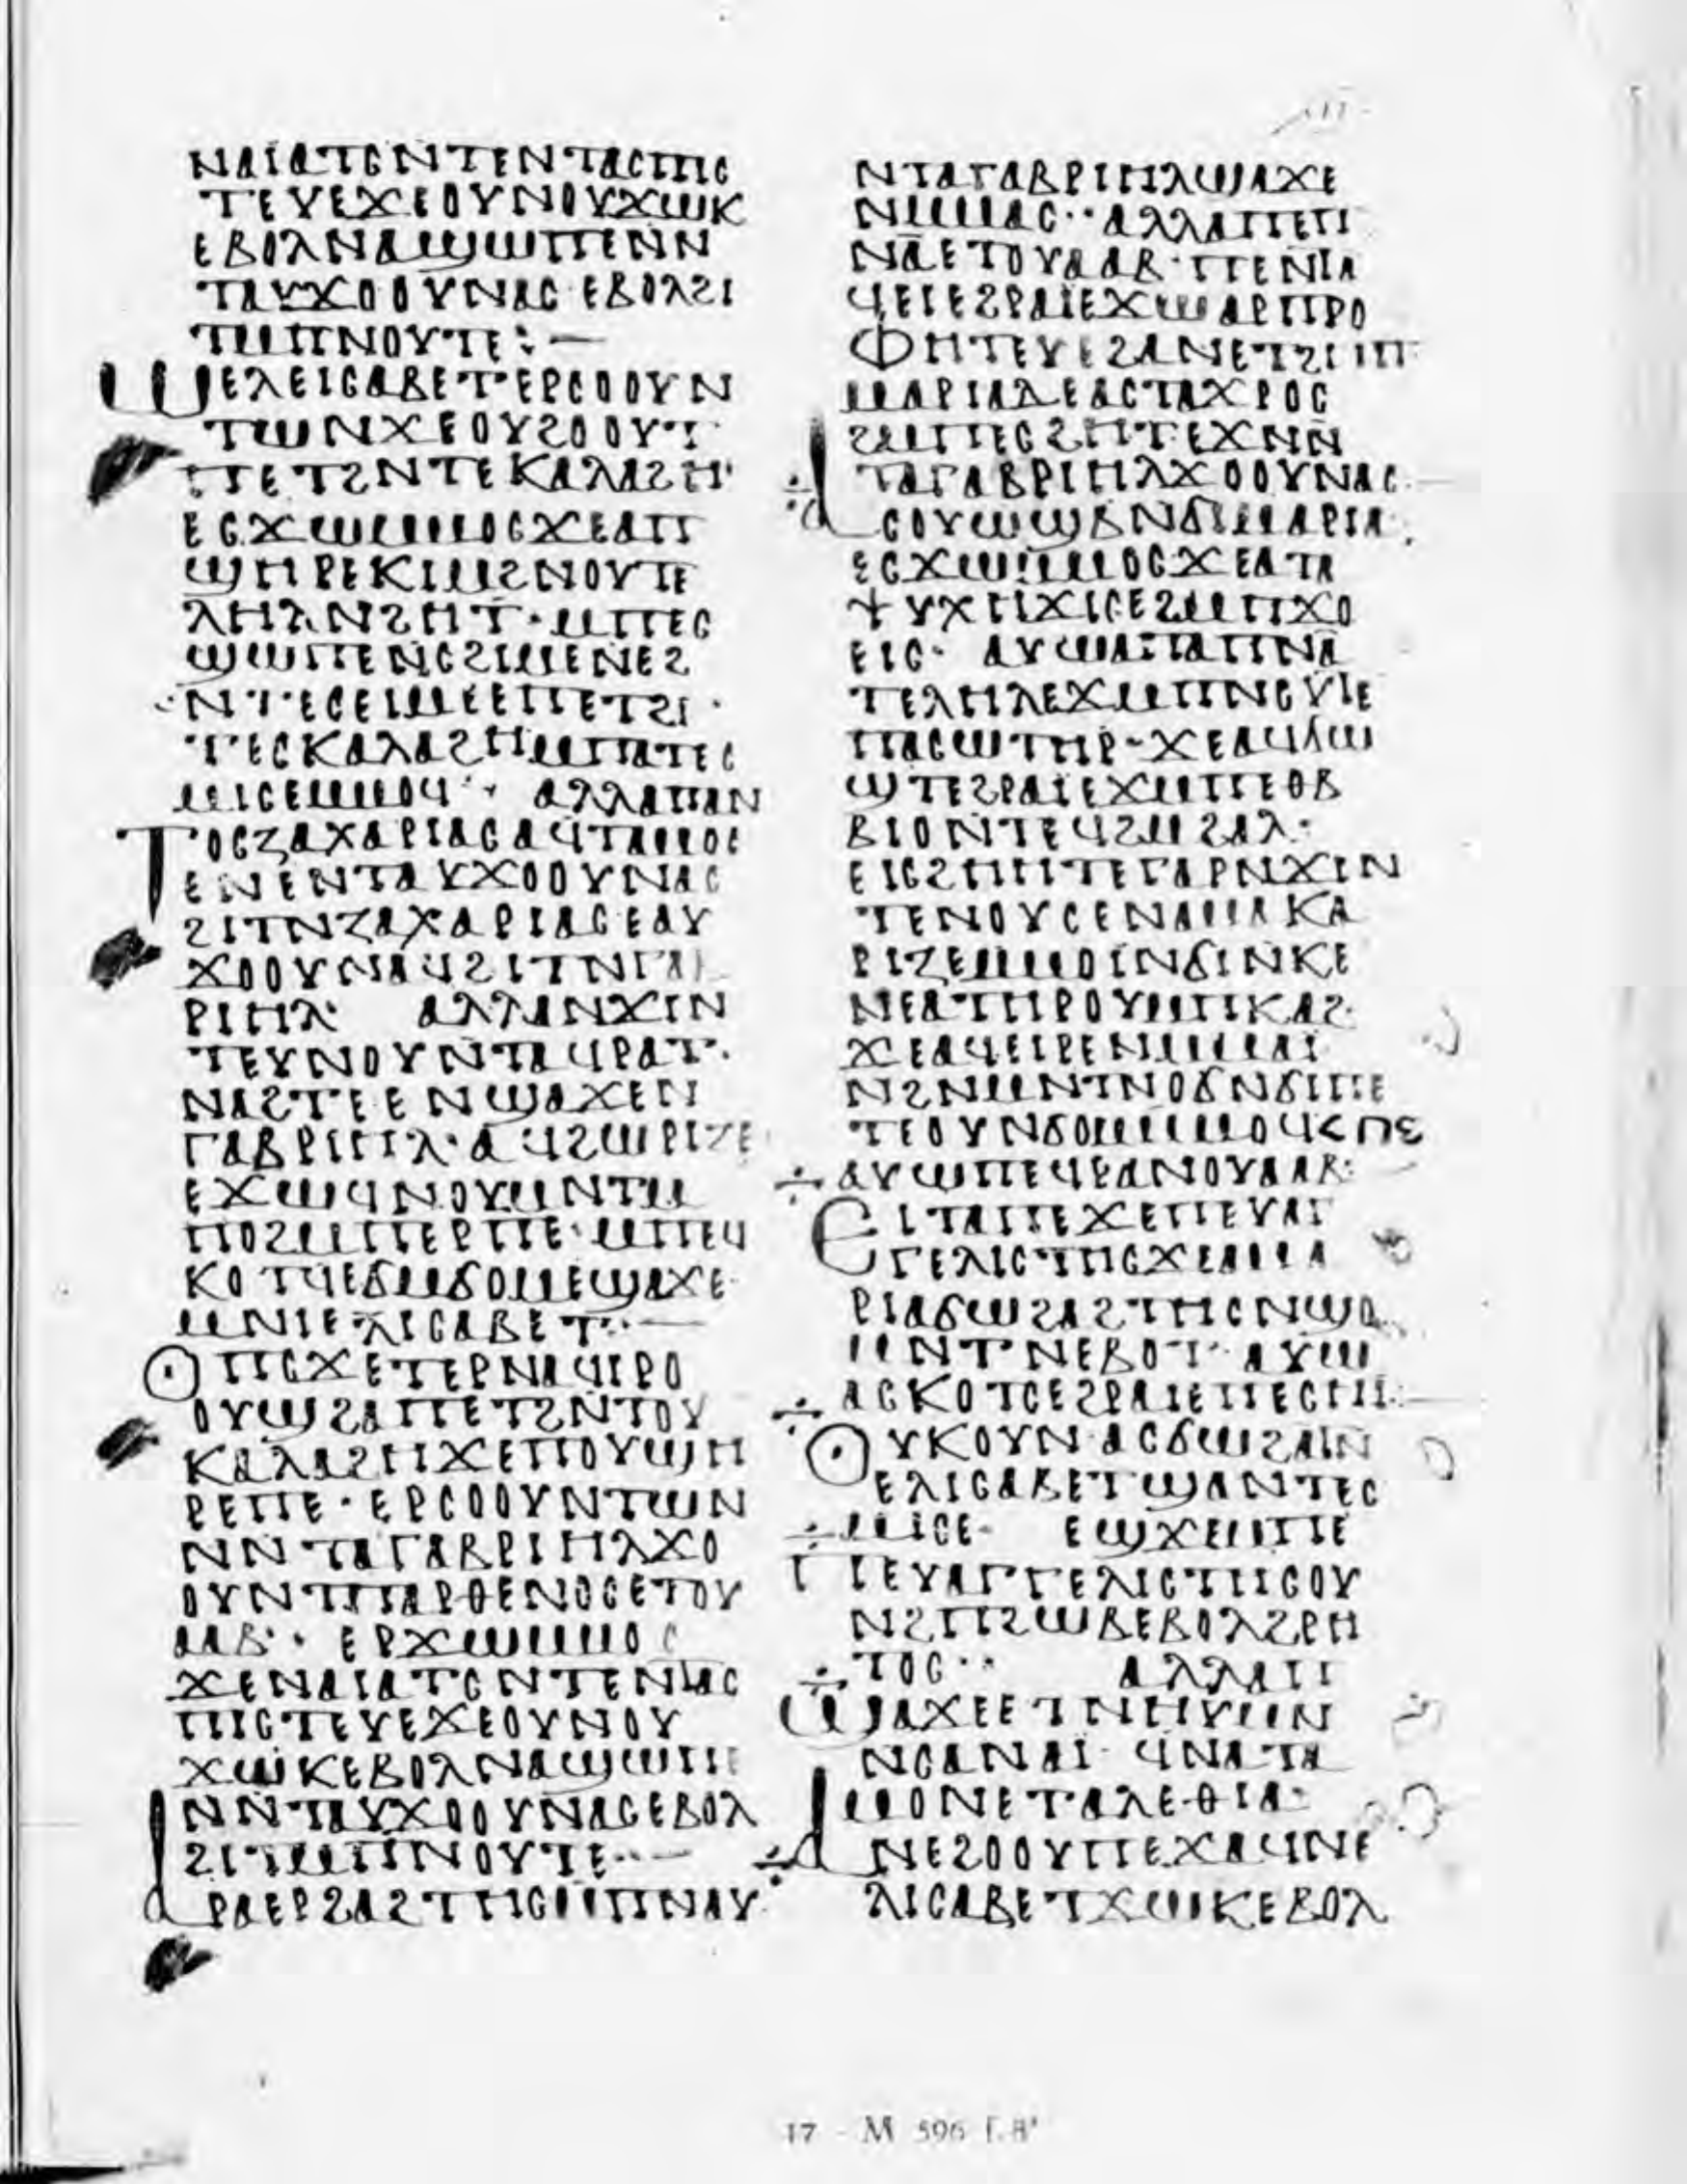 ⲛⲁⲓⲁⲧⲥⲛⲧⲉⲛⲧⲁⲥⲡⲓⲥ
ⲧⲉⲩⲉϫⲉⲟⲩⲛⲟⲩϫⲱⲕ
ⲉⲃⲟⲗⲛⲁϣⲱⲡⲉⲛⲛ
ⲧⲁⲩϫⲟⲟⲩⲛⲁⲥ·ⲉⲃⲟⲗϩⲓ
ⲧⲙⲡⲛⲟⲩⲧⲉ:—
ⲱⲉⲗⲉⲓⲥⲁⲃⲉⲧ·ⲉⲣⲥⲟⲟⲩⲛ
ⲧⲱⲛϫⲉⲟⲩϩⲟⲟⲩⲧ
ⲡⲉⲧϩⲛⲧⲉⲕⲁⲗⲁϩⲏ·
ⲉⲥϫⲱⲙⲙⲟⲥϫⲉⲁⲡ
ϣⲏⲣⲉⲕⲓⲙϩⲛⲟⲩⲧⲉ
ⲗⲏⲗⲛϩⲏⲧ·ⲙⲡⲉⲥ
ϣⲱⲡⲉⲛⲥϩⲓⲙⲉⲛⲉϩ
ⲛⲧⲉⲥⲉⲓⲙⲉⲉⲡⲉⲧϩⲓ·
ⲧⲉⲥⲕⲁⲗⲁϩⲏⲙⲡⲁⲧⲉⲥ
ⲙⲓⲥⲉⲙⲙⲟϥ·· ⲁⲗⲗⲁⲡⲁⲛ
ⲧⲟⲥⲍⲁⲭⲁⲣⲓⲁⲥⲁϥⲧⲁⲙⲟⲥ
ⲉⲛⲉⲛⲧⲁⲩϫⲟⲟⲩⲛⲁⲥ
ϩⲓⲧⲛⲍⲁⲭⲁⲣⲓⲁⲥⲉⲁⲩ
ϫⲟⲟⲩⲛⲁϥϩⲓⲧⲛⲅⲁⲃ
ⲣⲓⲏⲗ· ⲁⲗⲗⲁⲛϫⲓⲛ
ⲧⲉⲩⲛⲟⲩⲛⲧⲁϥⲣⲁⲧ·
ⲛⲁϩⲧⲉⲉⲛϣⲁϫⲉⲛ
ⲅⲁⲃⲣⲓⲏⲗ·ⲁϥϩⲱⲣⲓⲍⲉ
ⲉϫⲱϥⲛⲟⲩⲙⲛⲧⲙ
ⲡⲟϩⲙⲡⲉⲣⲡⲉ·ⲙⲡⲉϥ
ⲕⲟⲧϥⲉϭⲙϭⲟⲙⲉϣⲁϫⲉ
ⲙⲛⲓⲉⲗⲓⲥⲁⲃⲉⲧ··—
ⲟⲡⲥϫⲉⲧⲉⲣⲛⲁϥⲓⲣⲟ
ⲟⲩϣϩⲁⲡⲉⲧϩⲛⲧⲟⲩ
ⲕⲁⲗⲁϩⲏϫⲉⲡⲟⲩϣⲏ
ⲣⲉⲡⲉ·ⲉⲣⲥⲟⲟⲩⲛⲧⲱⲛ
ⲛⲛⲧⲁⲅⲁⲃⲣⲓⲏⲗϫⲟ
ⲟⲩⲛⲧⲡⲁⲣⲑⲉⲛⲟⲥⲉⲧⲟⲩ
ⲁⲁⲃ·· ⲉⲣϫⲱⲙⲙⲟⲥ
ϫⲉⲛⲁⲓⲁⲧⲥⲛⲧⲉⲛⲧⲁⲥ
ⲡⲓⲥⲧⲉⲩⲉϫⲉⲟⲩⲛⲟⲩ
ϫⲱⲕⲉⲃⲟⲗⲛⲁϣⲱⲡⲉ
ⲛⲛⲧⲁⲩϫⲟⲟⲩⲛⲁⲥⲉⲃⲟⲗ
ϩⲓⲧⲙⲡⲛⲟⲩⲧⲉ··—
ⲁⲣⲁⲉⲣϩⲁϩⲧⲏⲥⲙⲡⲛⲁⲩ
ⲛⲧⲁⲅⲁⲃⲣⲓⲏⲗϣⲁϫⲉ
ⲛⲙⲙⲁⲥ··ⲁⲗⲗⲁⲡⲉⲡ
ⲛⲁⲉⲧⲟⲩⲁⲁⲃ·ⲡⲉⲛⲧⲁ
ϥⲉⲓⲉϩⲣⲁⲓⲉϫⲱⲁⲣⲡⲣⲟ
ⲫⲏⲧⲉⲩⲉϩⲁⲛⲉⲧϩⲓⲡ
ⲙⲁⲣⲓⲁⲇⲉⲁⲥⲧⲁϫⲣⲟⲥ
ϩⲙⲡⲉⲥϩⲏⲧ·ⲉϫⲛⲛ
ⲧⲁⲅⲁⲃⲣⲓⲏⲗϫⲟⲟⲩⲛⲁⲥ·
ⲁⲥⲟⲩⲱϣⲃⲛϭⲓⲙⲁⲣⲓⲁ·
ⲉⲥϫⲱⲙⲙⲟⲥϫⲉⲁⲧⲁ
ⲯⲩⲭⲏϫⲓⲥⲉϩⲙⲡϫⲟ
ⲉⲓⲥ· ⲁⲩⲱⲁⲡⲁⲡⲛⲁ
ⲧⲉⲗⲏⲗⲉϫⲙⲡⲛⲟⲩⲧⲉ
ⲡⲁⲥⲱⲧⲏⲣ·ϫⲉⲁϥϭⲱ
ϣⲧⲉϩⲣⲁⲓⲉϫⲙⲡⲉⲑⲃ
ⲃⲓⲟⲛⲧⲉϥϩⲙϩⲁⲗ·
ⲉⲓⲥϩⲏⲏⲧⲉⲅⲁⲣⲛϫⲓⲛ
ⲧⲉⲛⲟⲩⲥⲉⲛⲁⲙⲁⲕⲁ
ⲣⲓⲍⲉⲙⲙⲟⲓⲛϭⲓⲛⲕⲉ
ⲛⲉⲁⲧⲏⲣⲟⲩⲙⲡⲕⲁϩ·
ϫⲉⲁϥⲉⲓⲣⲉⲛⲙⲙⲁⲓ
ⲛϩⲛⲙⲛⲧⲛⲟϭⲛϭⲓⲡⲉ
ⲧⲉⲟⲩⲛϭⲟⲙⲙⲙⲟϥ<ⲡⲉ
ⲁⲩⲱⲡⲉϥⲣⲁⲛⲟⲩⲁⲁⲃ:
ⲉⲓⲧⲁⲡⲉϫⲉⲡⲉⲩⲁⲅ
ⲅⲉⲗⲓⲥⲧⲏⲥϫⲉⲁⲙⲁ
ⲣⲓⲁϭⲱϩⲁϩⲧⲏⲥⲛϣⲟ
ⲙⲛⲧⲛⲉⲃⲟⲧ·ⲁⲩⲱ
ⲁⲥⲕⲟⲧⲥⲉϩⲣⲁⲓⲉⲡⲉⲥⲏⲓ:
ⲟⲩⲕⲟⲩⲛⲁⲥϭⲱϩⲁⲧⲛ
ⲉⲗⲓⲥⲁⲃⲉⲧϣⲁⲛⲧⲉⲥ
ⲙⲓⲥⲉ· ⲉϣϫⲉⲙⲡⲉ
ⲡⲉⲩⲁⲅⲅⲉⲗⲓⲥⲧⲏⲥⲟⲩ
ⲛϩⲡϩⲱⲃⲉⲃⲟⲗϩⲣⲏ
ⲧⲟⲥ·· ⲁⲗⲗⲁⲡ
ϣⲁϫⲉⲉⲧⲛⲏⲩⲙⲛ
ⲛⲥⲁⲛⲁⲓ· ϥⲛⲁⲧⲁ
ⲙⲟⲛⲉⲧⲁⲗⲉⲑⲓⲁ·
ⲁⲛⲉϩⲟⲟⲩⲡⲉϫⲁϥⲛⲉ
ⲗⲓⲥⲁⲃⲉⲧϫⲱⲕⲉⲃⲟⲗ
17 - M 596 f. 8ᵛ